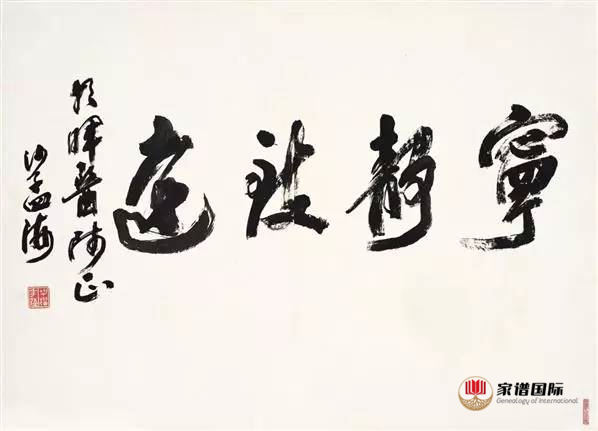 寧靜致遠
暉醫師正
沙孟海
家谱国际
Genealogy of International